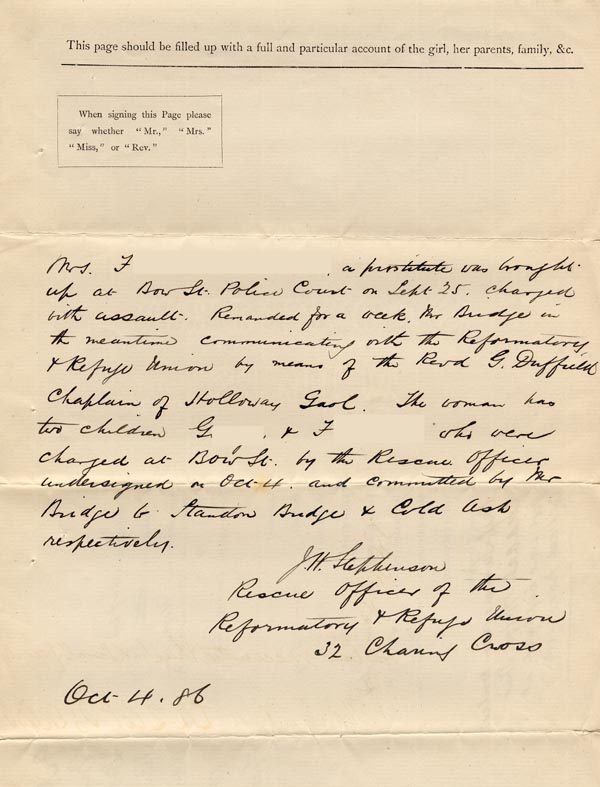 This page should be filled up with a full and particular account of the girl, her parents, family, &c.
When signing this Page please
say whether "Mr.," "Mrs."
"Miss," or "Rev."
Mrs. F a prostitute was brought
up at Bow St. Police Court on Sept 25. charged
with assault. Remanded for a week, Mr Bridge in
th meantime communicating with the Reformatory
& Refuge Union by means of the Revd G. Duffield
Chaplain of Holloway Gaol. The woman has
two children G & F who were
charged at Bow St. by the Rescue Officer
undersigned on Oct 4. and committed by Mr
Bridge to Standon Bridge & Cold Ash
respectively.
J.W. Stephenson
Rescue Officer of the
Reformatory & Refuge Union
32 Charing Cross
Oct 4. 86